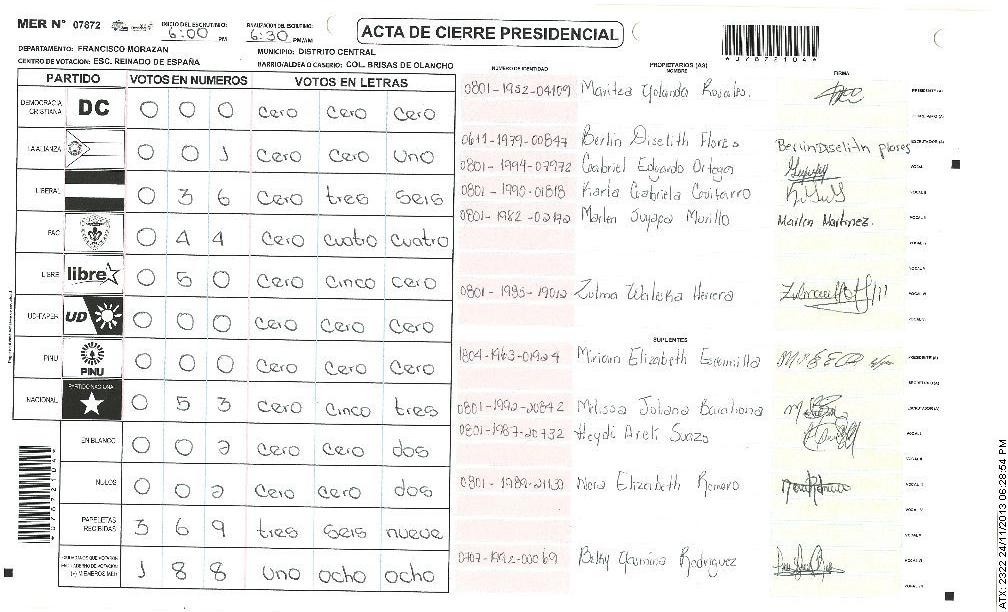 MER N° 07872 INICIO DEL ESCRUTINIO: 6:00 PM FINALIZACION DEL ESCRUTINIO: 6:30 PM/AM ACTA DE CIERRE PRESIDENCIAL
DEPARTAMENTO: FRANCISCO MORAZAN MUNICIPIO: DISTRITO CENTRAL
CENTRO DE VOTACION: ESC. REINADO DE ESPAÑA BARRIO/ALDEA O CASERIO: COL. BRISAS DE OLANCHO
*07872104*
PARTIDO VOTOS EN NUMEROS VOTOS EN LETRAS
DEMOCRACIA CRISTIANA DC 0 0 0 cero cero cero
LA ALIANZA 0 0 1 cero cero uno
LIBERAL 0 3 6 cero tres seis
PAC 0 4 4 cero cuatro cuatro
LIBRE libre 0 5 0 cero cinco cero
UD-FAPER UD 0 0 0 cero cero cero
PINU PINU 0 0 0 cero cero cero
NACIONAL PARTIDO NACIONAL 0 5 3 cero cinco tres
EN BLANCO 0 0 2 cero cero dos
NULOS 0 0 2 cero cero dos
PAPELETAS RECIBIDAS 3 6 9 tres seis nueve
CIUDADANOS QUE VOTARON
(+) MIEMBROS MER 1 8 8 uno ocho ocho
NUMERO DE IDENTIDAD PROPIETARIOS (AS) NOMBRE FIRMA
0801-1952-04109 Maritza Yolanda Rosales. PRESIDENTE (A)
SECRETARIO (A)
0611-1979-00847 Berlin Diselith Flores ESCRUTADOR (A)
0801-1994-07972 Gabriel Edgardo Ortega VOCAL I
0801-1990-01818 Karla Gabriela VOCAL II
0801-1982-02192 Marlen Suyapa Murillo Marlen Martinez. VOCAL III
0801-1985-19012 Zulma Waleska Herrera
SUPLENTES
1804-1963-01924 Miriam Elizabeth Escamilla PRESIDENTE (A)
SECRETARIO (A)
0801-1992-20842 Melissa Juliana Barahona ESCRUTADOR (A)
0801-1987-20732 Heydi Areli Suazo VOCAL I
0801-1989-21130 Nora Elizabeth Romero
0707-1992-00069 Betsy Yasmina Rodriguez
*07872104*
ATX: 2322 24/11/2013 06:28:54 PM